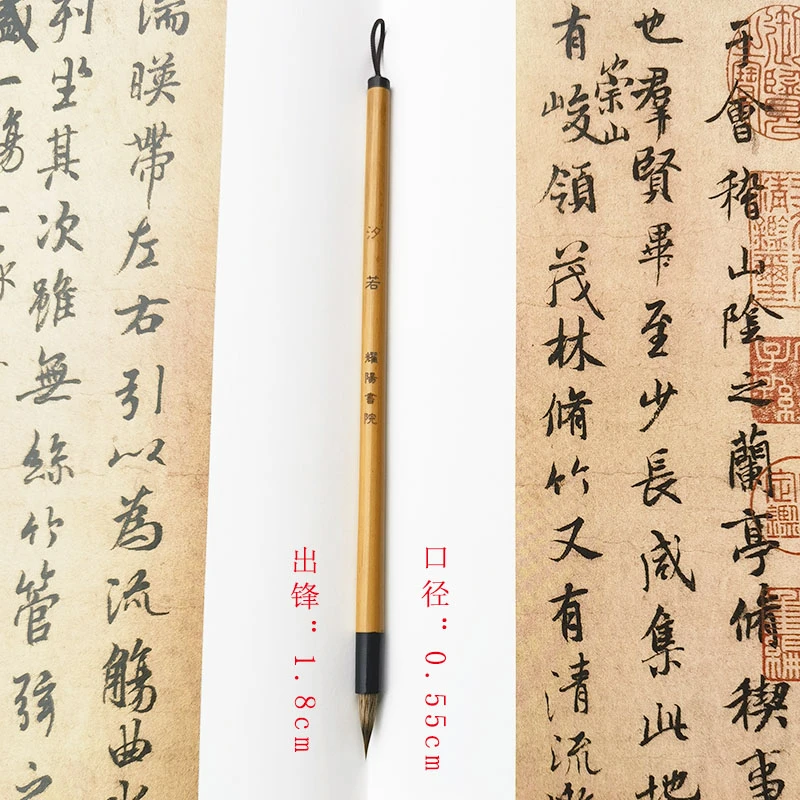 于會稽山陰之蘭亭脩稧事
也羣賢畢至少長咸集此地
有崇山峻領茂林脩竹又有清流
湍暎帶左右引以為流觴曲水
列坐其次雖無絲竹管弦之
盛一觴一詠
汐若
耀陽書院
口径：0.55cm
出锋：1.8cm